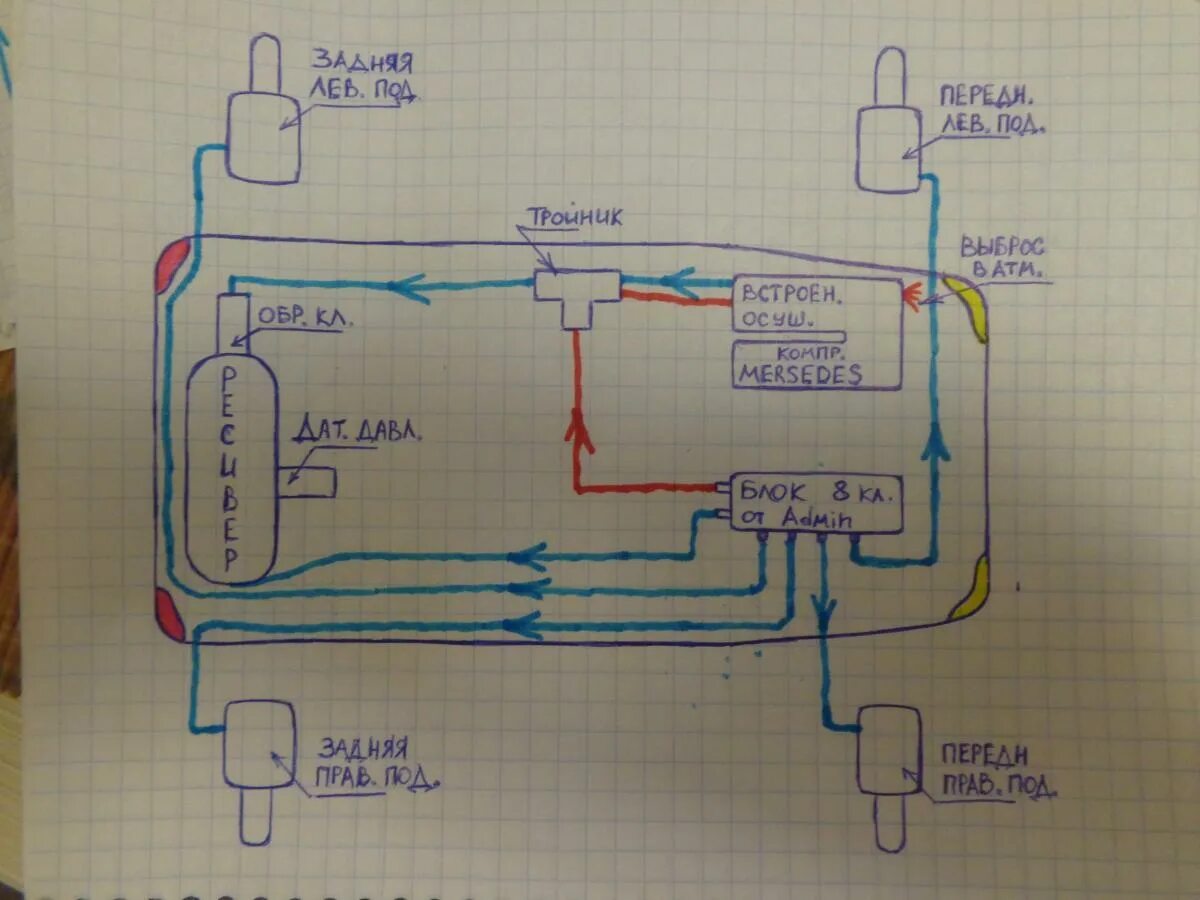 ЗАДНЯЯ
ЛЕВ. ПОД.
ПЕРЕДН.
ЛЕВ. ПОД.
ТРОЙНИК
ВЫБРОС
В АТМ.
ВСТРОЕН.
ОСУШ.
ОБР. КЛ.
КОМПР.
MERSEDES
РЕСИВЕР
ДАТ. ДАВЛ.
БЛОК 8 КЛ.
ОТ Admin
ЗАДНЯЯ
ПРАВ. ПОД.
ПЕРЕДН
ПРАВ. ПОД.